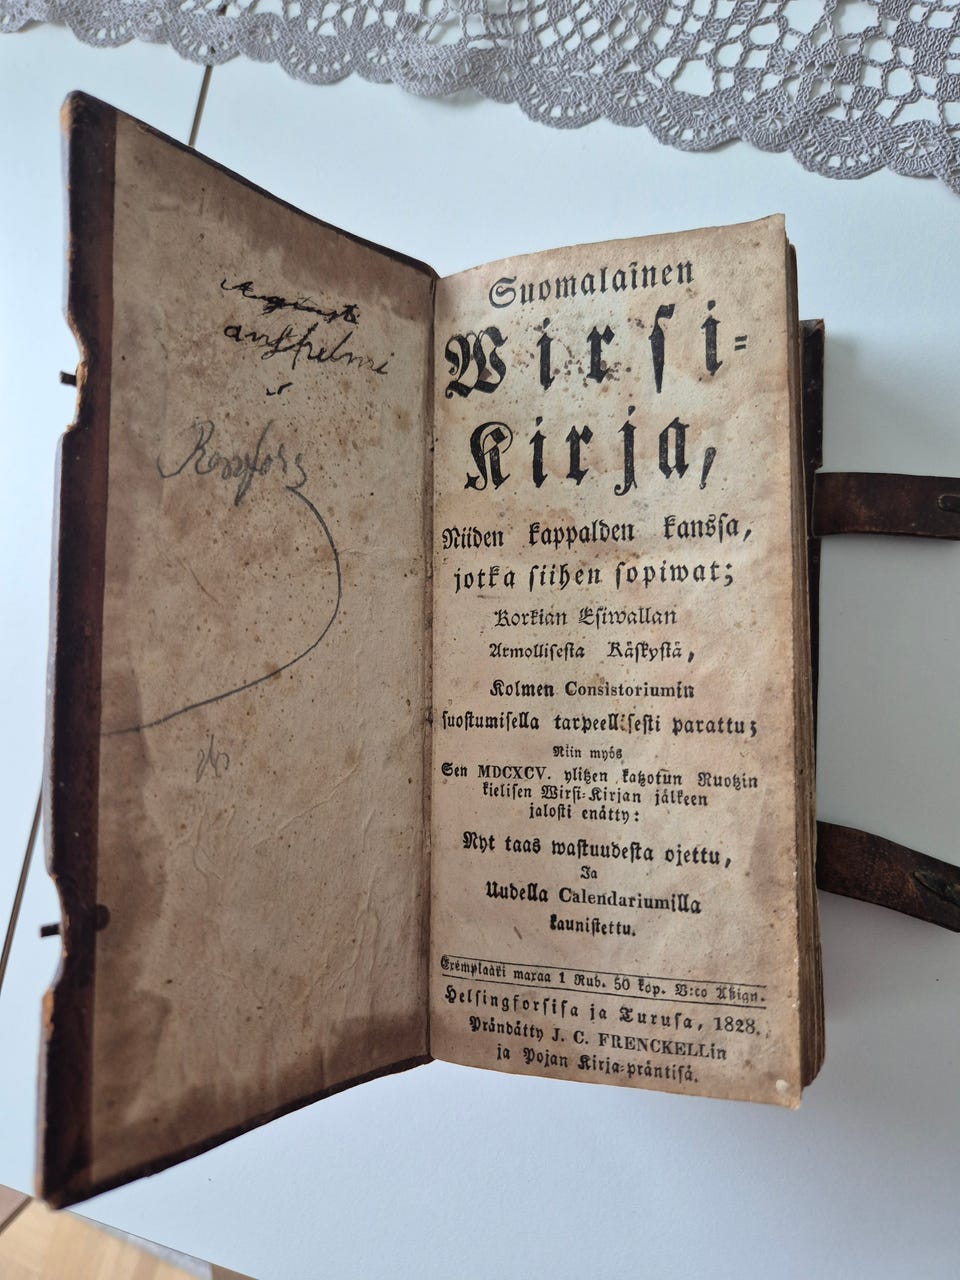 Suomalainen
Wirsi-
Kirja,
Niiden kappalden kanssa,
jotka siihen sopiwat;
Korkian Esiwallan
Armollisesta Käskystä,
Kolmen Consistoriumin
suostumisella tarpeellisesti parattu;
Niin myös
Sen MDCXCV. ylitzen katzotun Ruotzin
kielisen Wirsi-Kirjan jälkeen
jalosti enätty:
Nyt taas wastuudesta ojettu,
Ja
Uudella Calendariumilla
kaunistettu.
Exemplaari maxaa 1 Rub. 50 kop. B:co Aßign.
Helsingforsisa ja Turusa, 1828.
Prändätty J. C. FRENCKELLin
ja Pojan Kirja-präntisä.